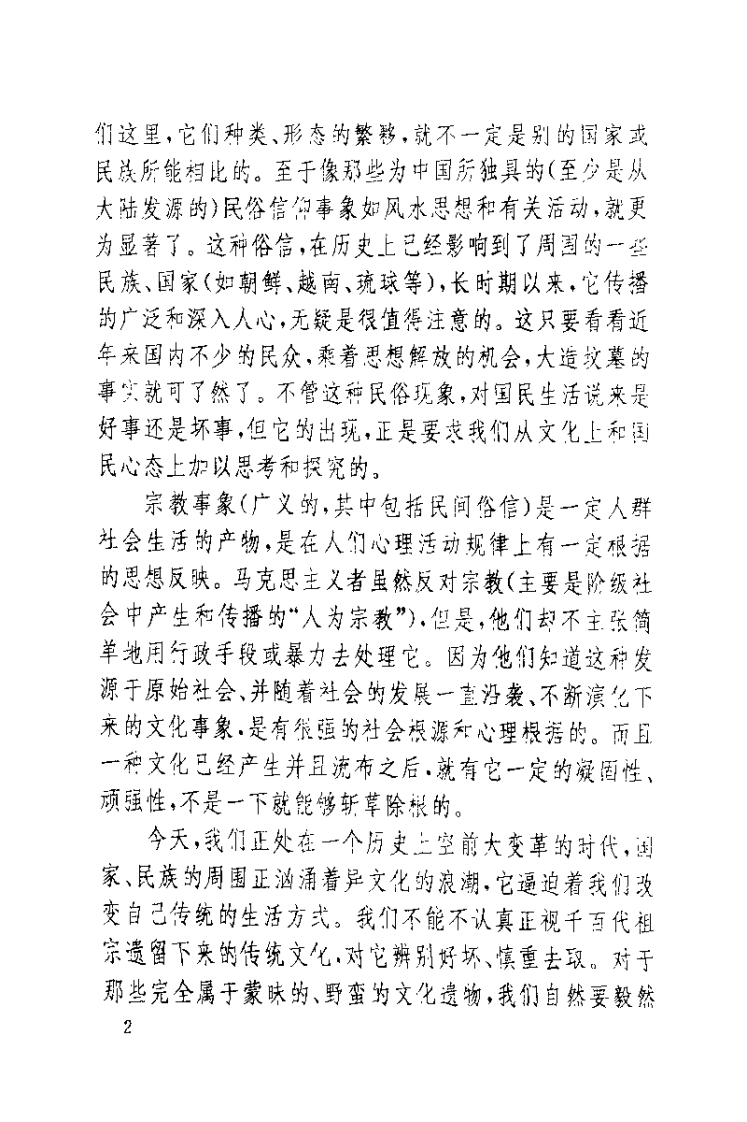 们这里,它们种类、形态的繁夥,就不一定是别的国家或
民族所能相比的。至于像那些为中国所独具的(至少是从
大陆发源的)民俗信仰事象如风水思想和有关活动,就更
为显著了。这种俗信,在历史上已经影响到了周围的一些
民族、国家(如朝鲜、越南、琉球等),长时期以来,它传播
的广泛和深入人心,无疑是很值得注意的。这只要看看近
年来国内不少的民众,乘着思想解放的机会,大造坟墓的
事实就可了然了。不管这种民俗现象,对国民生活说来是
好事还是坏事,但它的出现,正是要求我们从文化上和国
民心态上加以思考和探究的。
宗教事象(广义的,其中包括民间俗信)是一定人群
社会生活的产物,是在人们心理活动规律上有一定根据
的思想反映。马克思主义者虽然反对宗教(主要是阶级社
会中产生和传播的“人为宗教”),但是,他们却不主张简
单地用行政手段或暴力去处理它。因为他们知道这种发
源于原始社会、并随着社会的发展一直沿袭、不断演化下
来的文化事象,是有很强的社会根源和心理根据的。而且
一种文化已经产生并且流布之后,就有它一定的凝固性、
顽强性,不是一下就能够斩草除根的。
今天,我们正处在一个历史上空前大变革的时代,国
家、民族的周围正汹涌着异文化的浪潮,它逼迫着我们改
变自己传统的生活方式。我们不能不认真正视千百代祖
宗遗留下来的传统文化,对它辨别好坏、慎重去取。对于
那些完全属于蒙昧的、野蛮的文化遗物,我们自然要毅然
2